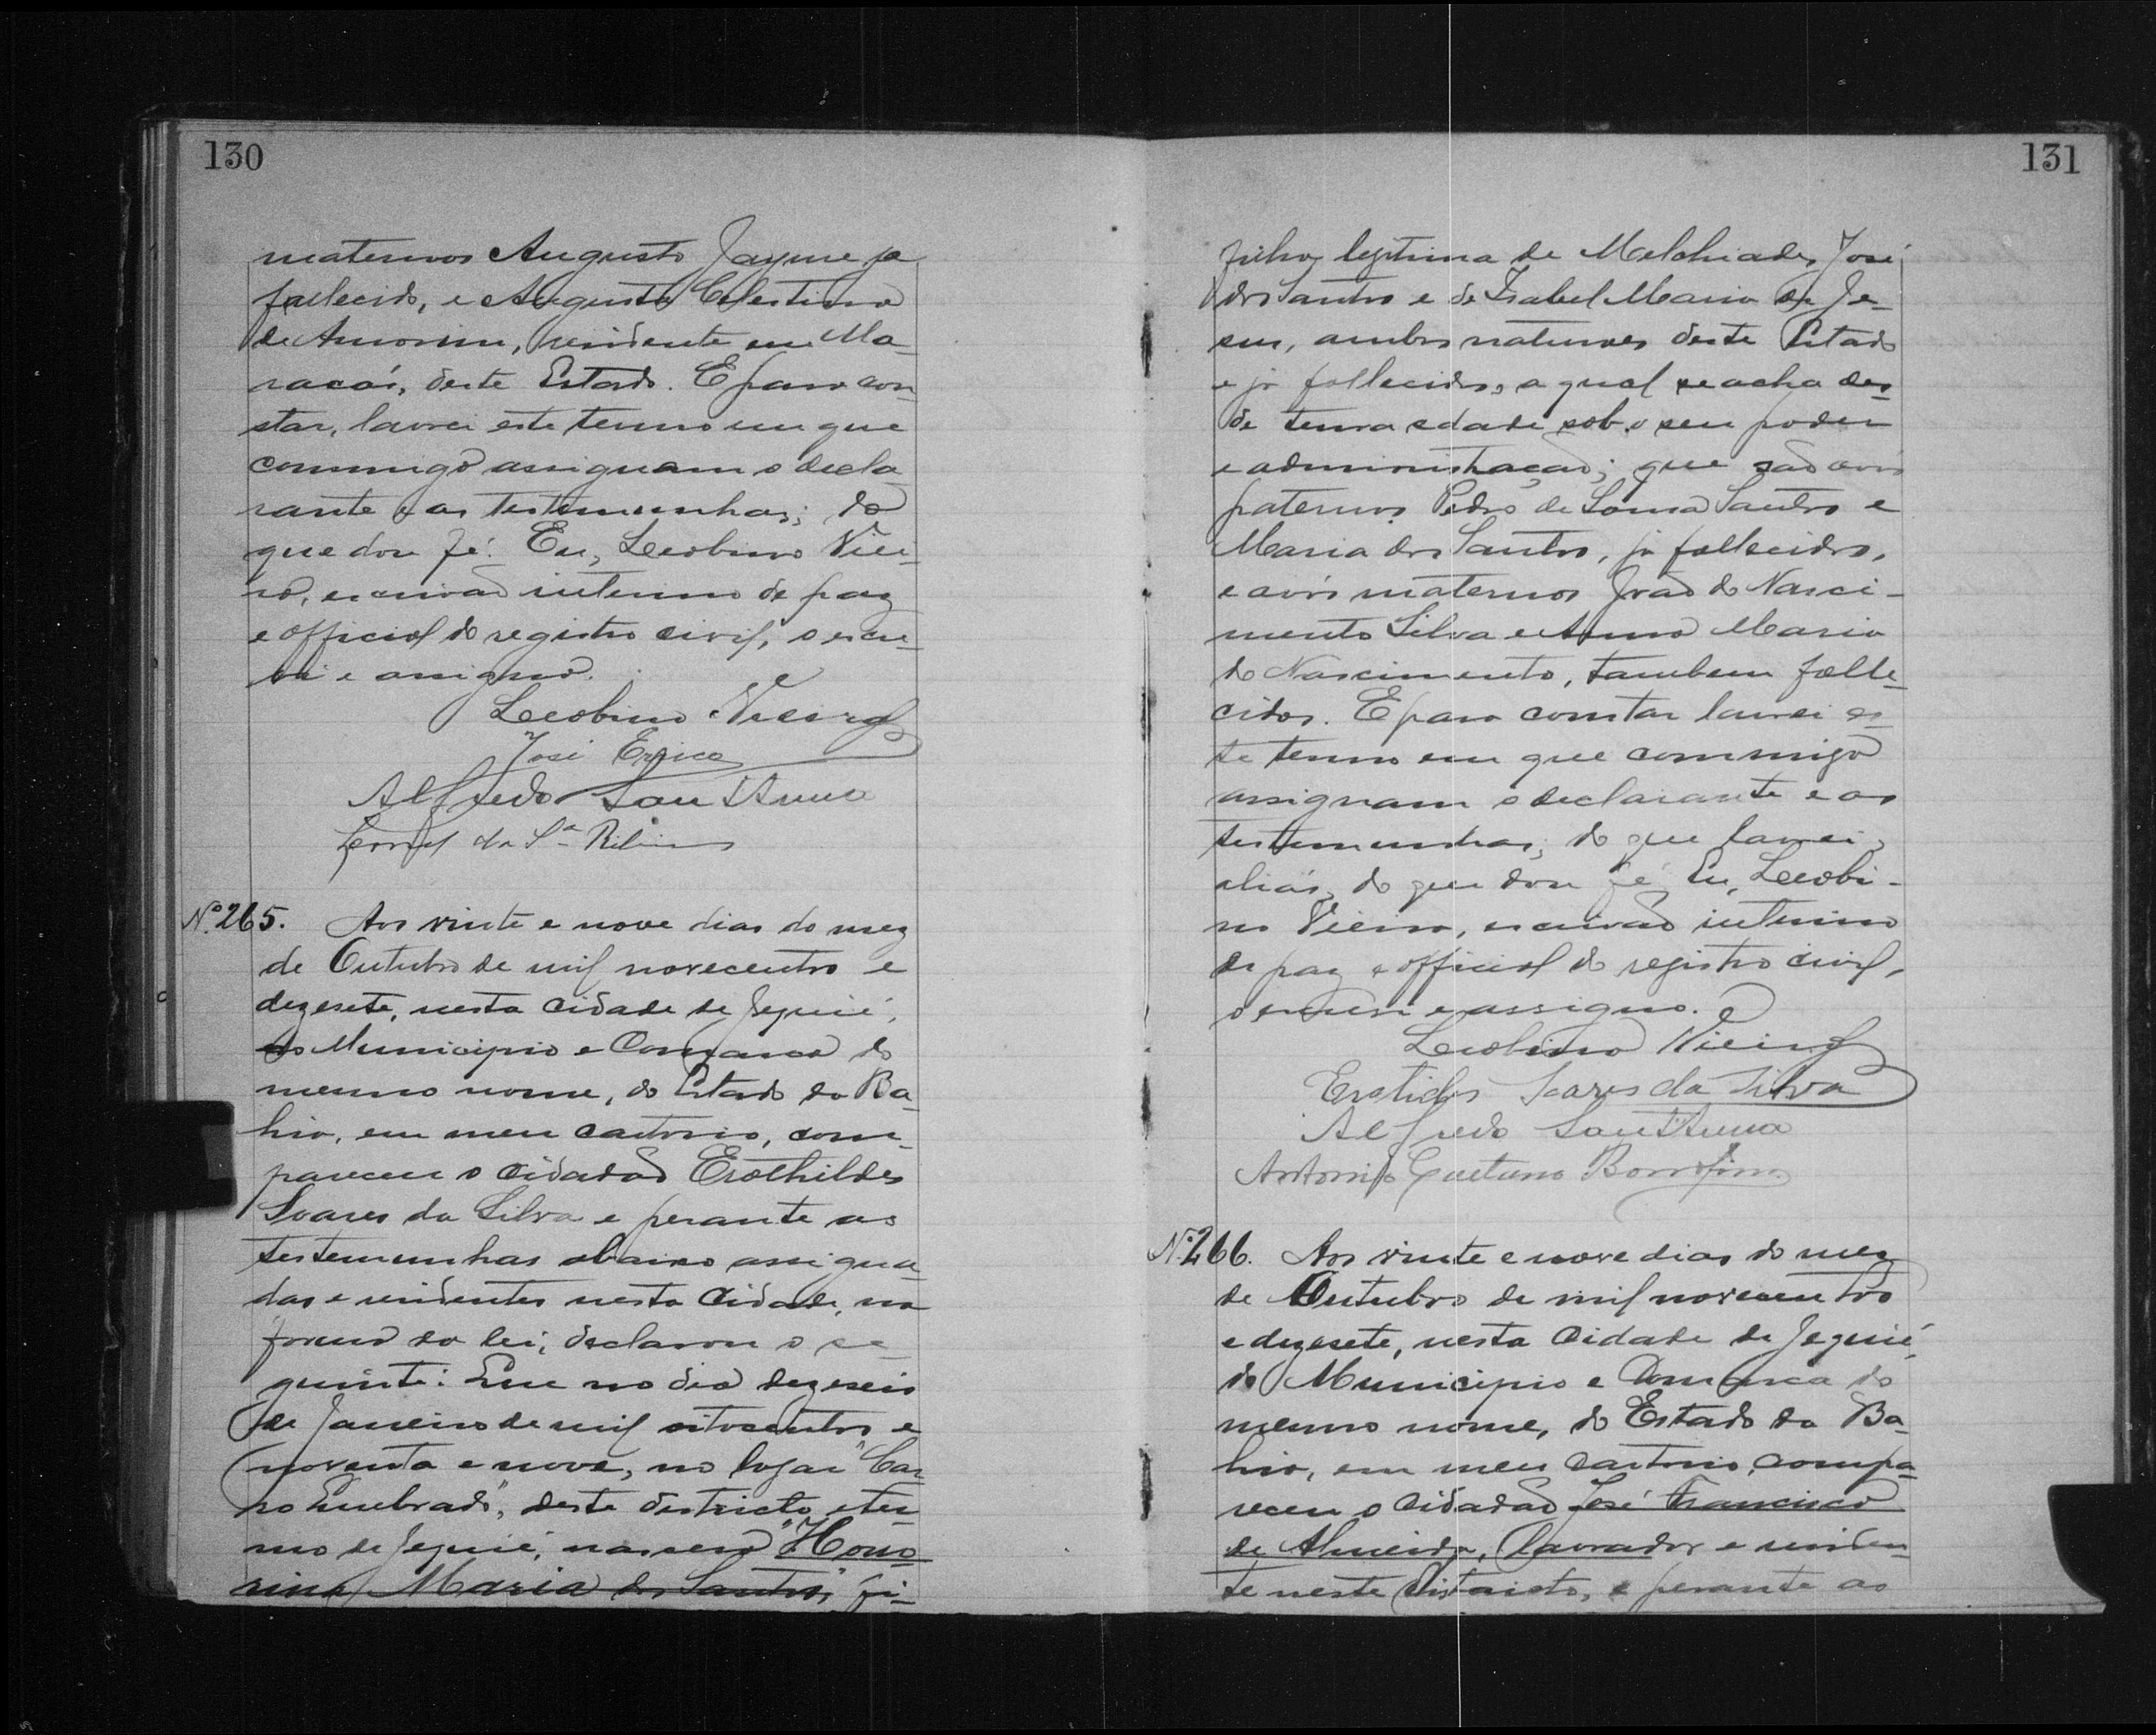 130
maternos Augusto Jayme já
fallecido, e Augusta Celestina
de Amorim, residente em Ma-
racás, deste Estado. E para con-
star, lavrei este termo em que
commigo assignam o decla-
rante e as testemunhas; do
que dou fé. Eu, Leobino Viei-
ra, escrivão interino de paz
e official do registro civil, o escre-
vi e assigno.
Leobino Vieira
José
Alfredo Sant'Anna
da Sª Ribeiro
Nº 265. Aos vinte e nove dias do mez
de Outubro de mil novecentos e
dezesete, nesta cidade de Jequié,
do Municipio e Comarca do
mesmo nome, do Estado da Ba-
hia, em meu cartorio, com-
pareceu o cidadão Erothildes
Soares da Silva e perante as
testemunhas abaixo assigna-
das e residentes nesta cidade, na
forma da lei, declarou o se-
guinte: Que no dia dezeseis
de Janeiro de mil oitocentos e
noventa e nove, no logar "Car-
ro Quebrado", deste districto e ter-
mo de Jequié, nasceu "Hono-
rina Maria dos Santos", fi-
131
filha legitima de Melchiades José
dos Santos e de Izabel Maria de Je-
sus, ambos naturaes deste Estado
e já fallecidos, a qual se acha des-
de tenra edade sob o seu poder
e administração; que são avós
paternos Pedro de Souza Santos e
Maria dos Santos, já fallecidos,
e avós maternos João do Nasci-
mento Silva e Anna Maria
do Nascimento, tambem falle-
cidos. E para constar lavrei es-
te termo em que commigo
assignam o declarante e as
testemunhas; do que lavrei,
aliás, do que dou fé. Eu, Leobi-
no Vieira, escrivão interino
de paz e official do registro civil,
o escrevi e assigno.
Leobino Vieira
Erotides Soares da Silva
Alfredo Sant'Anna
Antonio Caetano Bomfim
Nº 266. Aos vinte e nove dias do mez
de Outubro de mil novecentos
e dezesete, nesta cidade de Jequié,
do Municipio e Comarca do
mesmo nome, do Estado da Ba-
hia, em meu cartorio, compa-
receu o cidadão José Francisco
de Almeida, lavrador e residen-
te neste districto, e perante as